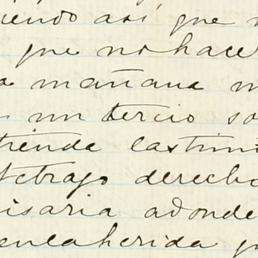 iendo así que n
que no hace
a mañana m
un tercio so
tiende lastim
tebrazo derecho
isaria adonde
en la herida q